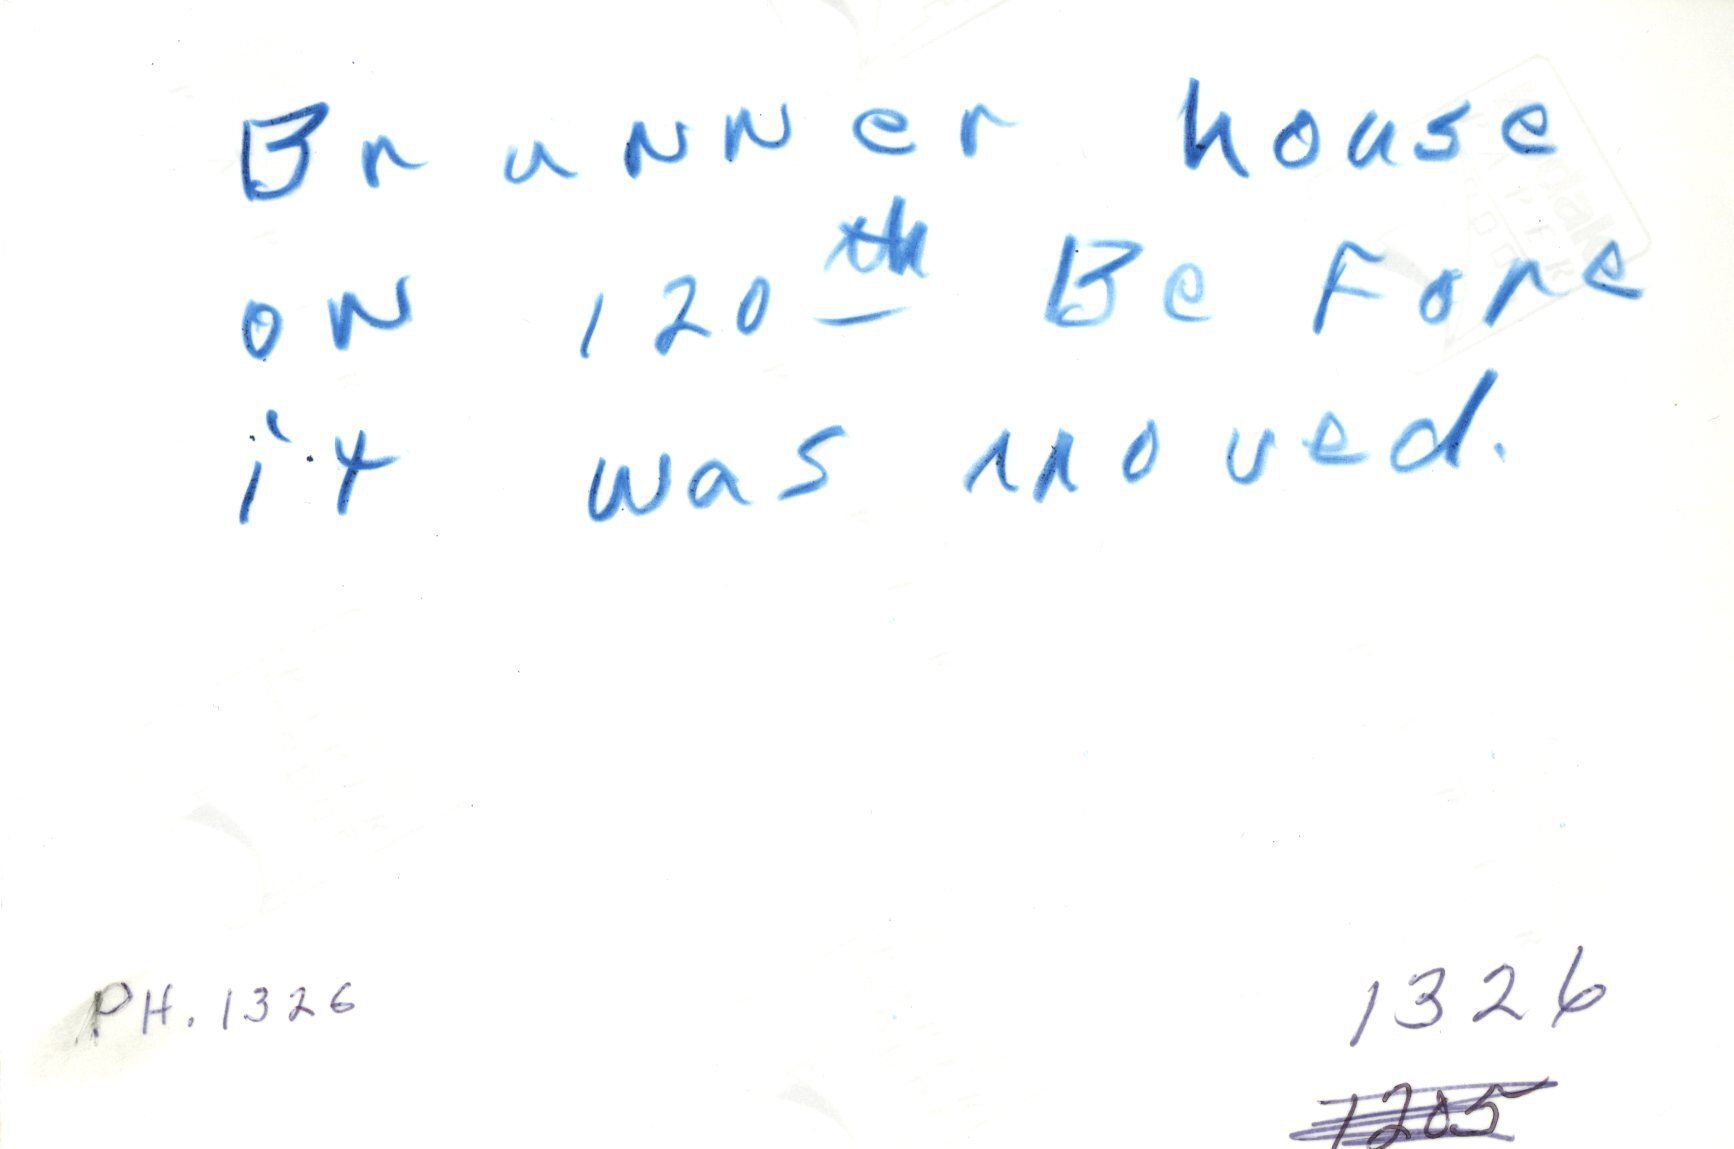 Brunner house
on 120th Before
it was moved.
PH. 1326
1326
1205